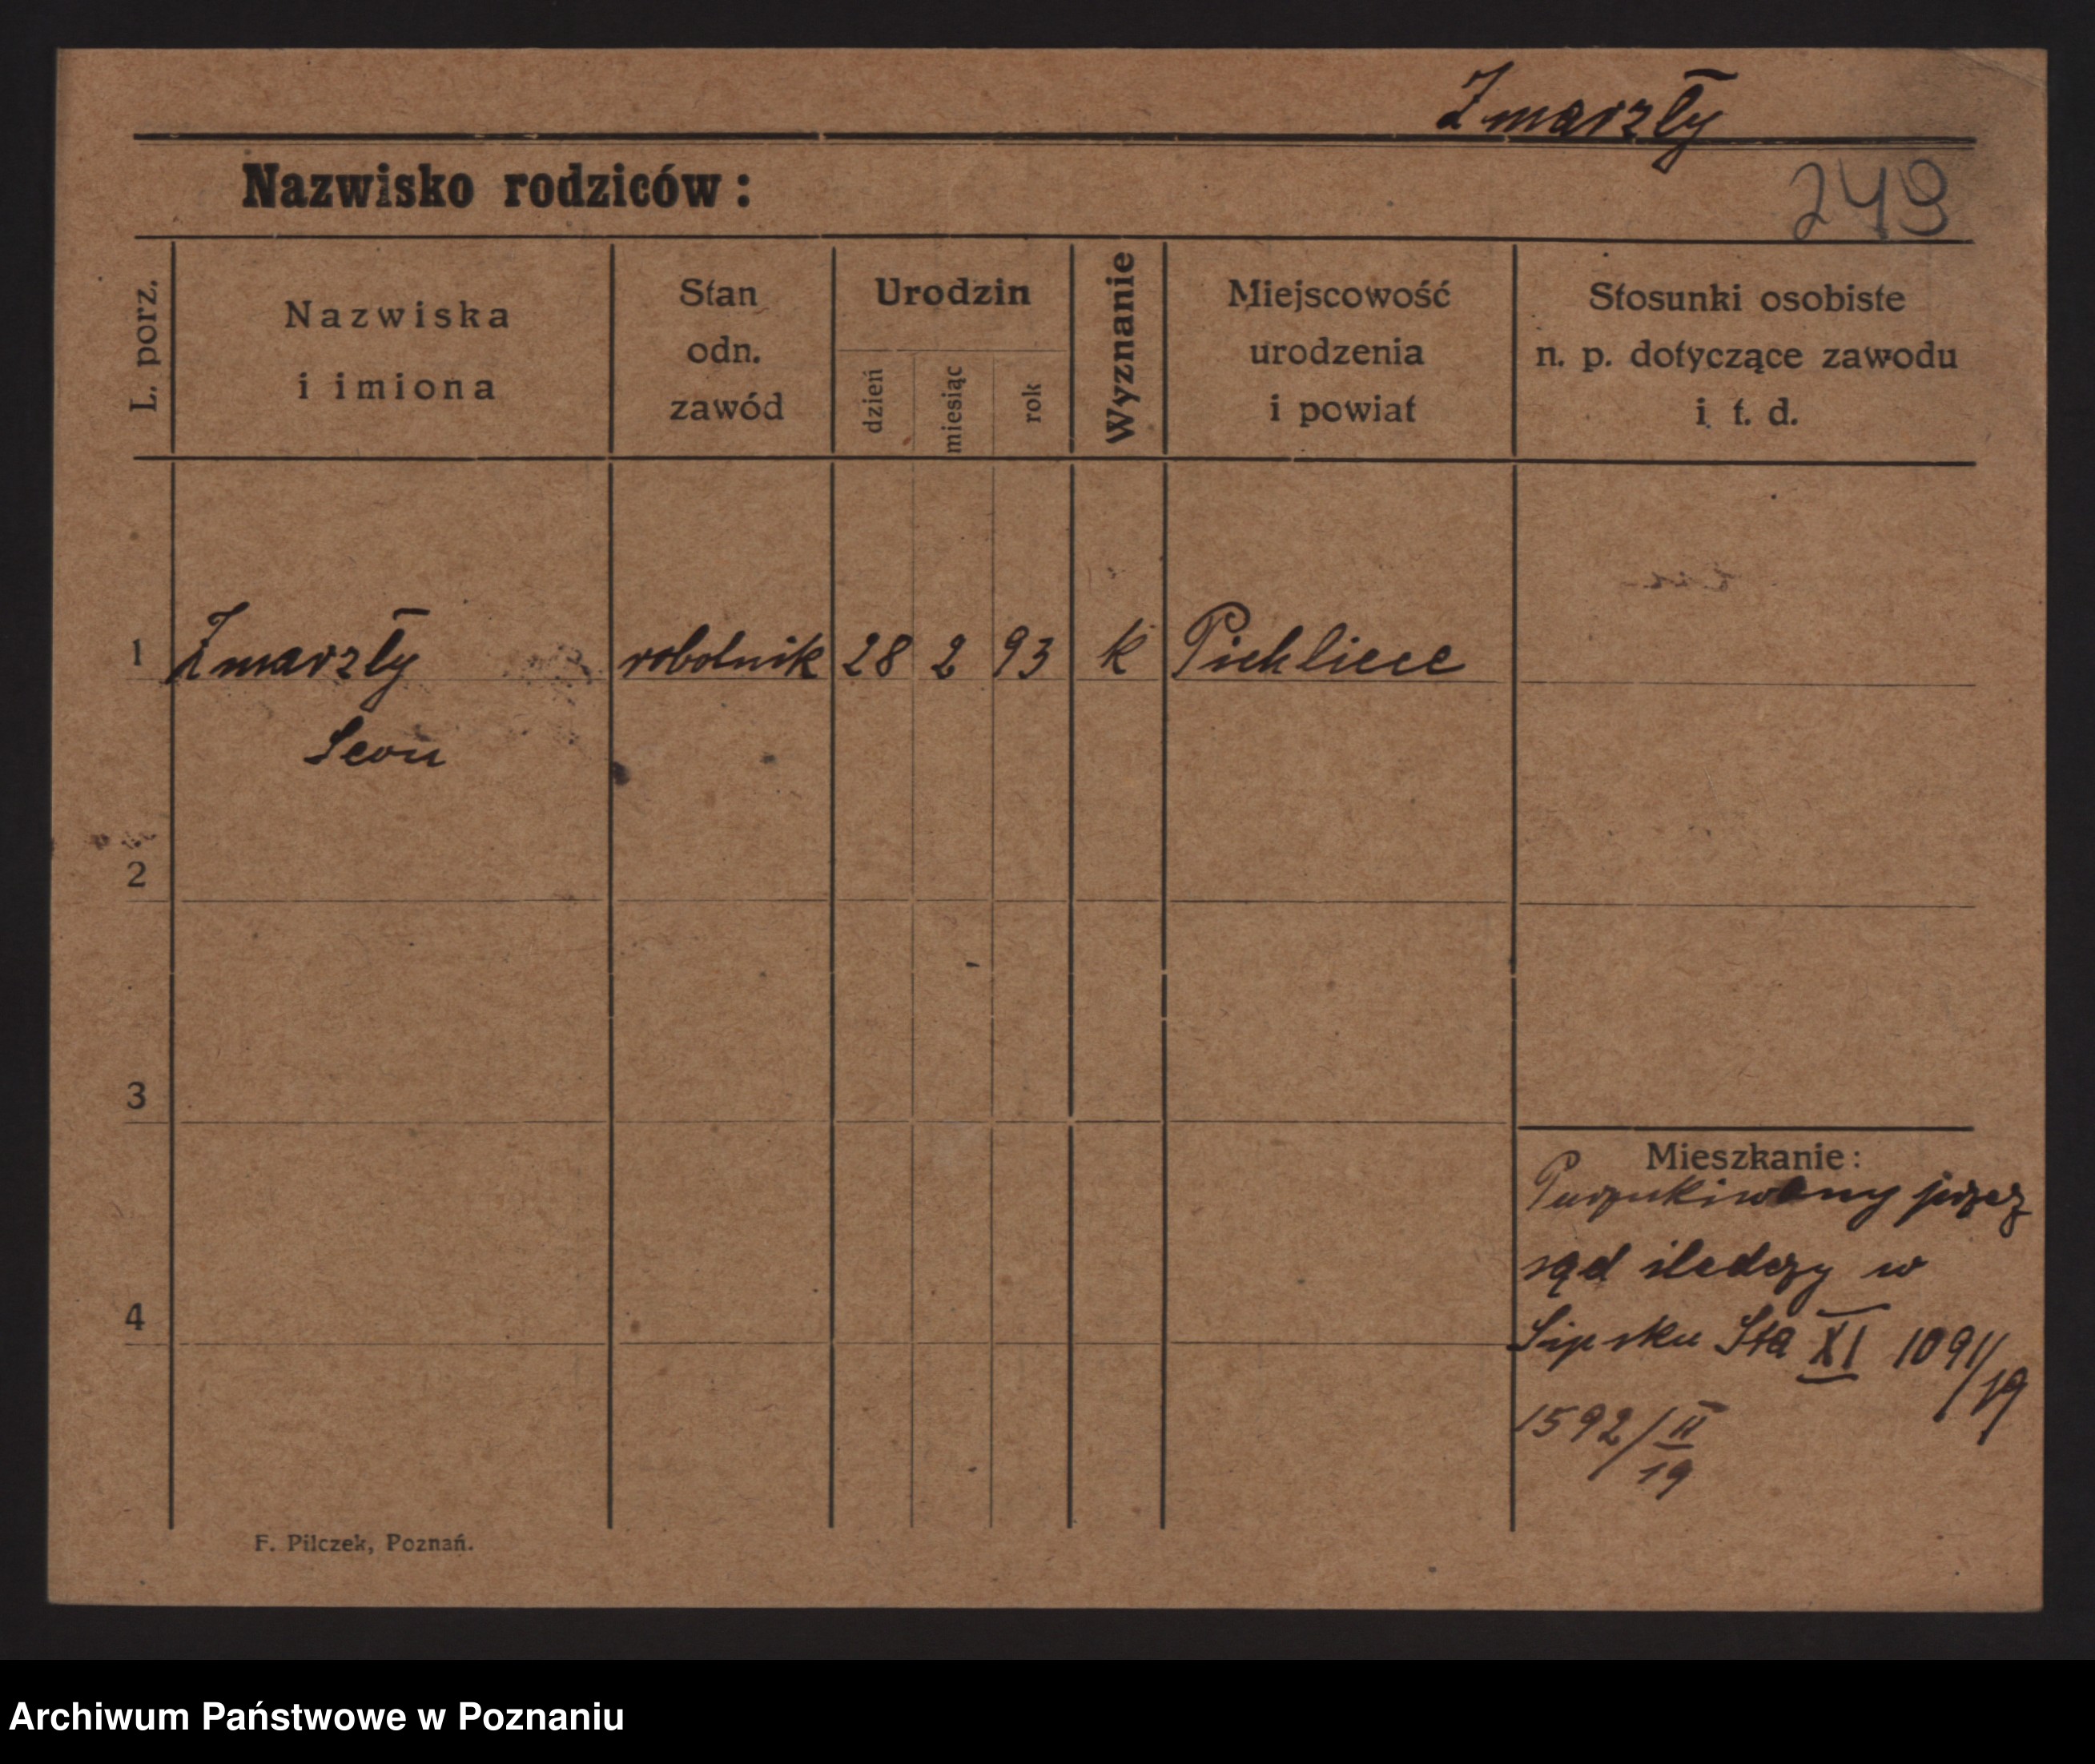 Zmarzły
Nazwisko rodziców:
249
L. porz.
Nazwiska
i imiona
Stan
odn.
zawód
Urodzin
dzień
miesiąc
rok
Wyznanie
Miejscowość
urodzenia
i powiat
Stosunki osobiste
n. p. dotyczące zawodu
i t. d.
1 Zmarzły robotnik 28 2 93 k
Leon
2
3
Mieszkanie:
Poszukiwany przez
sąd śledczy w
4
Lipsku Sta XI 1091/19
1592/II 19
F. Pilczek, Poznań.
Archiwum Państwowe w Poznaniu